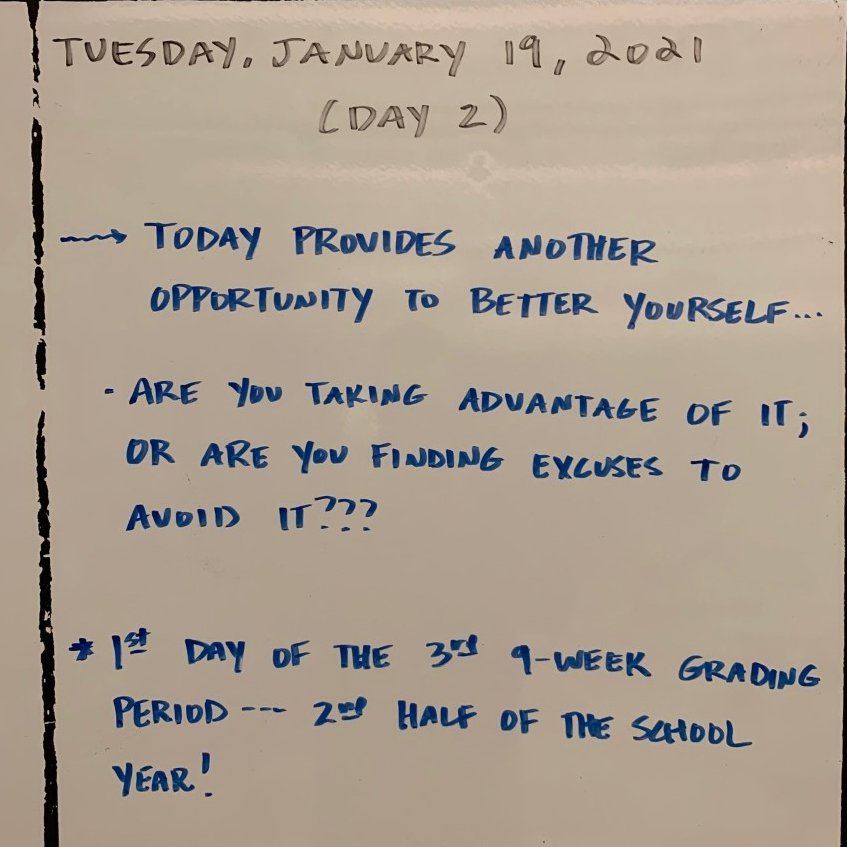 TUESDAY, JANUARY 19, 2021
(DAY 2)
→ TODAY PROVIDES ANOTHER
OPPORTUNITY TO BETTER YOURSELF...
- ARE YOU TAKING ADVANTAGE OF IT;
OR ARE YOU FINDING EXCUSES TO
AVOID IT???
* 1st DAY OF THE 3rd 9-WEEK GRADING
PERIOD --- 2nd HALF OF THE SCHOOL
YEAR!